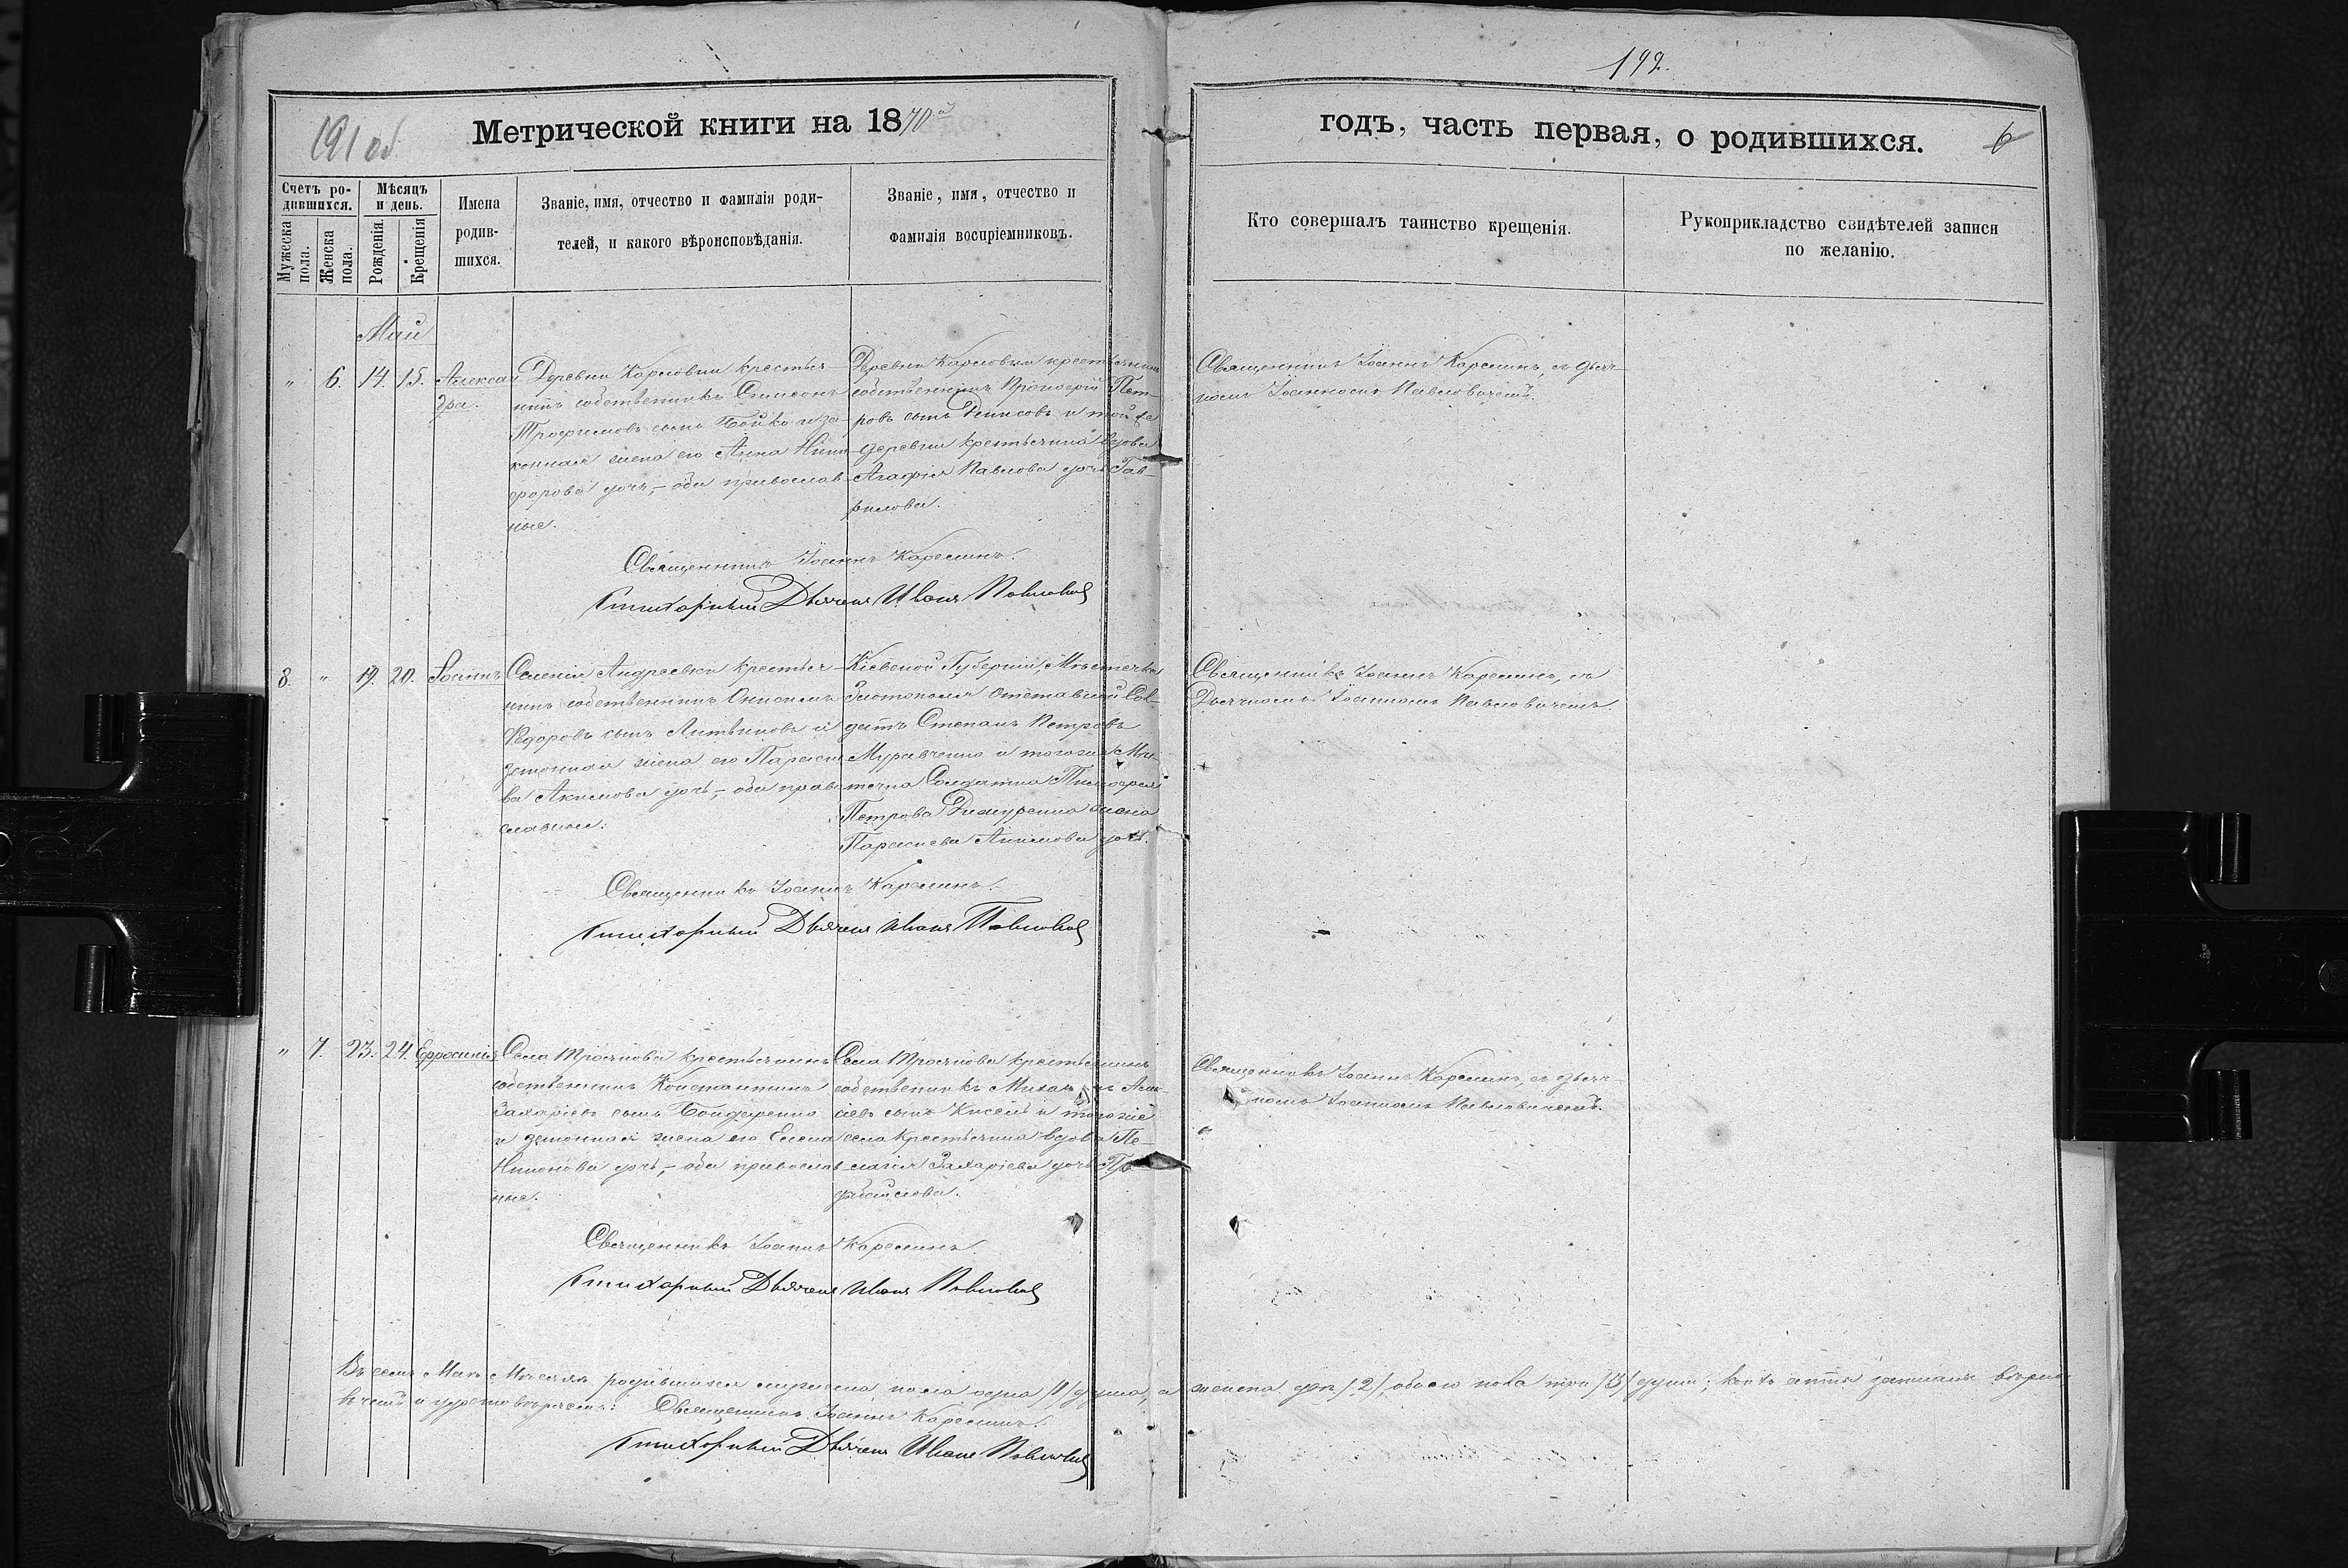 192.
191 об
Метрической книги на 1870й
годъ, часть первая, о родившихся.
6
Счетъ ро-
дившихся.
Мужеска
пола.
Женска
пола.
Мѣсяцъ
и день.
Рожденія.
Крещенія
Имена
родив-
шихся.
Званіе, имя, отчество и фамилія роди-
телей, и какого вѣроисповѣданія.
Званіе, имя, отчество и
фамилія воспріемниковъ.
Кто совершалъ таинство крещенія.
Рукоприкладство свидѣтелей записи
по желанію.
Май
" 6. 14. 15.
Алексан
дра.
Деревни Карловки крестья-
нинъ собственникъ Симеонъ
Трофимовъ сынъ Бойко и за-
конная жена его Анна Ники-
форова дочь,- оба православ-
ные.
Деревни Карловки крестьянинъ
собственникъ Прокофій Пет-
ровъ сынъ Денисовъ и той же
деревни крестьянка вдова
Агафія Павлова дочь Гав-
рилова.
Священникъ Іоаннъ Карелинъ, съ дьяч-
комъ Іоанномъ Павловичемъ.
Священникъ Іоаннъ Карелинъ.
Стихарный Дьячекъ Иванъ Павловичъ
8. " 19. 20.
Іоаннъ
Селенія Андреевки крестья-
нинъ собственникъ Онисимъ
Федоровъ сынъ Литвиновъ и
законная жена его Параске
ва Акимова дочь,- оба право
славные.
Кіевской Губерніи, Мѣстечка
Златополя Отставной Сол-
датъ Степанъ Петровъ
Муравченко и тогоже Мѣс-
течка Солдатка
Петрова жена
Параскева Акимова дочь.
Священникъ Іоаннъ Карелинъ, съ
Дьячкомъ Іоанномъ Павловичемъ.
Священникъ Іоаннъ Карелинъ.
Стихарный Дьячекъ Иванъ Павловичъ
" 7. 23. 24.
Ефросинія
Села Троянова крестьянинъ
собственникъ Константинъ
Захаріевъ сынъ Бондаренко
и законная жена его Елена
Никонова дочь,- оба православ-
ные.
Села Троянова крестьянинъ
собственникъ Михаилъ
сынъ Кисель и того же
села крестьянка вдова Пе-
лагія Захаріева дочь
Священникъ Іоаннъ Карелинъ, съ дьяч-
комъ Іоанномъ Павловичемъ.
Священникъ Іоаннъ Карелинъ.
Стихарный Дьячекъ Иванъ Павловичъ
Въ семъ Маѣ Мѣсяцѣ родившихся мужеска пола одна /1/ душа, а женска двѣ /2/, обоего пола три /3/ души;
Священникъ Іоаннъ Карелинъ.
Стихарный Дьячекъ Иванъ Павловичъ